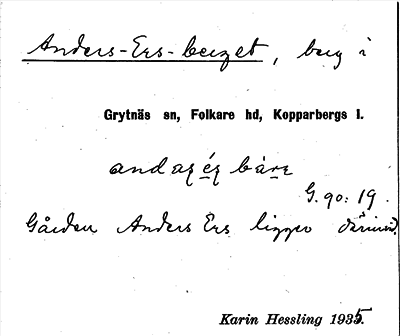 Anders-Ers-berget, berg i
Grytnäs sn, Folkare hd, Kopparbergs l.
andaṣéṣ bárɛ
G. 90: 19.
Gården Anders Ers ligger därinvid.
Karin Hessling 1935.